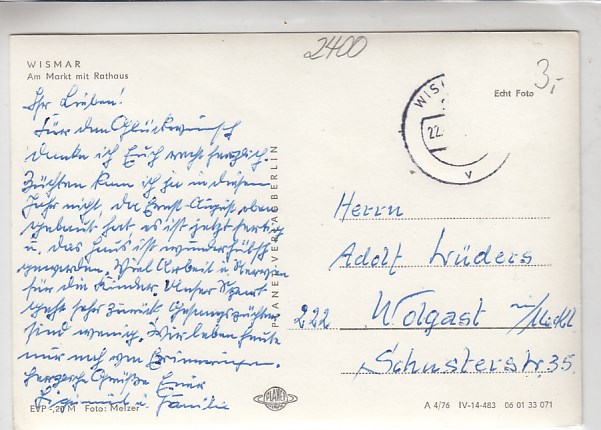 2400
3,-
WISMAR
Am Markt mit Rathaus
Echt Foto
WIS
22.
v
Ihr Lieben!
Für den Glückwunsch
danke ich Euch recht herzlich.
Züchten kann ich ja in diesem
Jahr nicht, da Ernst-August eben
gebaut hat, es ist jetzt fertig
u. das Haus ist wunderhübsch
geworden. Viel Arbeit u. Nerven
für die Kinder. Unser Sport
geht sehr zurück, Gesangszüchter
sind wenig. Wir leben heute
nur noch von Erinnerungen.
Herzliche Grüße Euer
u. Familie
PLANET-VERLAG BERLIN
Herrn
Adolf Lüders
222 Wolgast in/Meckl
Schusterstr. 35
EVP -,20 M Foto: Melzer
PLANET
A 4/76 IV-14-483 06 01 33 071